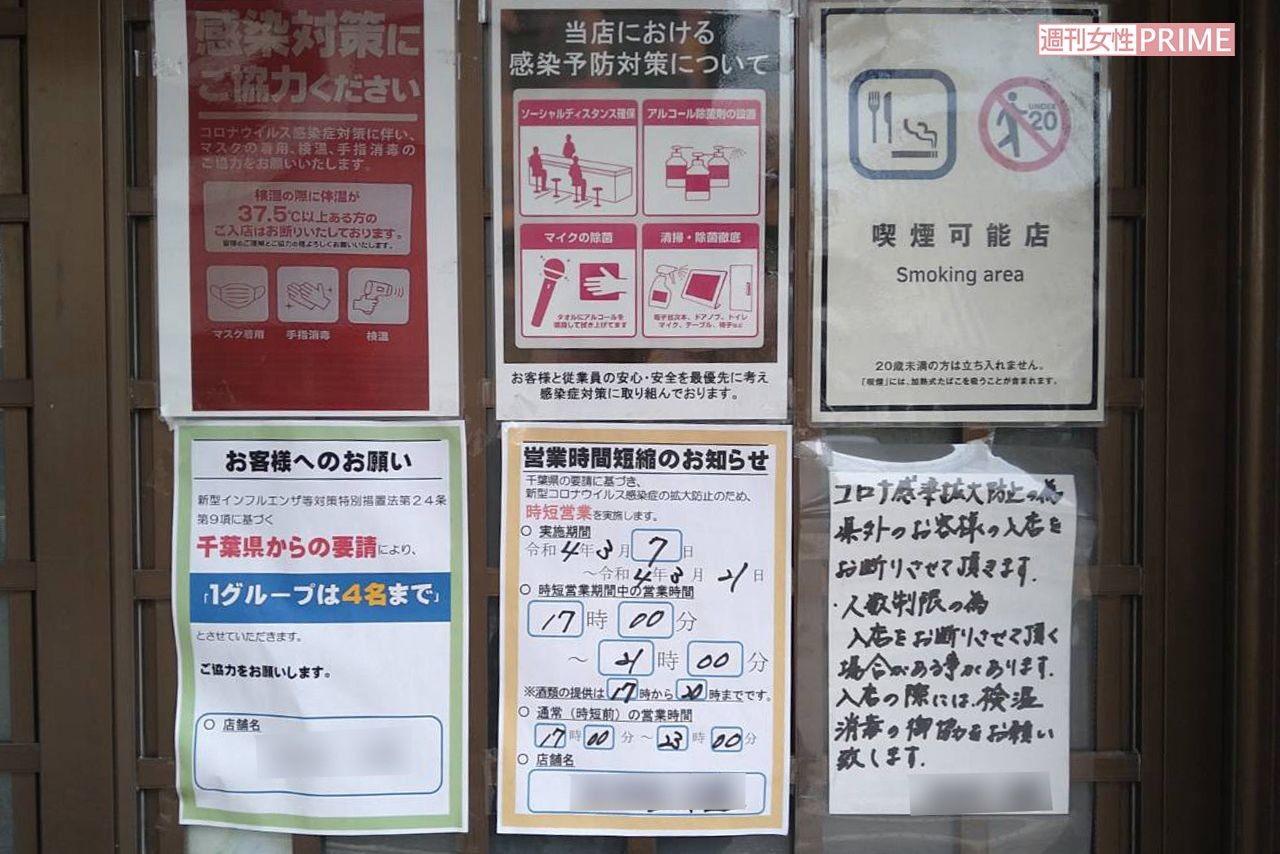 週刊女性PRIME
感染対策に
ご協力ください
コロナウイルス感染症対策に伴い、
マスクの着用、検温、手指消毒の
ご協力をお願いいたします。
検温の際に体温が
37.5℃以上ある方の
ご入店はお断りいたしております。
皆様のご理解とご協力の程よろしくお願いいたします。
マスク着用
手指消毒
検温
当店における
感染予防対策について
ソーシャルディスタンス確保
アルコール除菌剤の設置
マイクの除菌
タオルにアルコールを
噴霧して拭き上げてます
清掃・除菌徹底
電子目次本、ドアノブ、トイレ
マイク、テーブル、椅子など
お客様と従業員の安心・安全を最優先に考え
感染症対策に取り組んでおります。
UNDER
20
喫煙可能店
Smoking area
20歳未満の方は立ち入れません。
「喫煙」には、加熱式たばこを吸うことが含まれます。
お客様へのお願い
新型インフルエンザ等対策特別措置法第24条
第9項に基づく
千葉県からの要請により、
「1グループは4名まで」
とさせていただきます。
ご協力をお願いします。
○ 店舗名
営業時間短縮のお知らせ
千葉県の要請に基づき、
新型コロナウイルス感染症の拡大防止のため、
時短営業を実施します。
○ 実施期間
令和4年3月7日
～令和4年3月21日
○ 時短営業期間中の営業時間
17時00分
～21時00分
※酒類の提供は17時から20時までです。
○ 通常（時短前）の営業時間
17時00分～23時00分
○ 店舗名
コロナ感染拡大防止の為
県外のお客様の入店を
お断りさせて頂きます.
・人数制限の為
入店をお断りさせて頂く
場合がある事があります.
入店の際には、検温
消毒の御協力をお願い
致します.